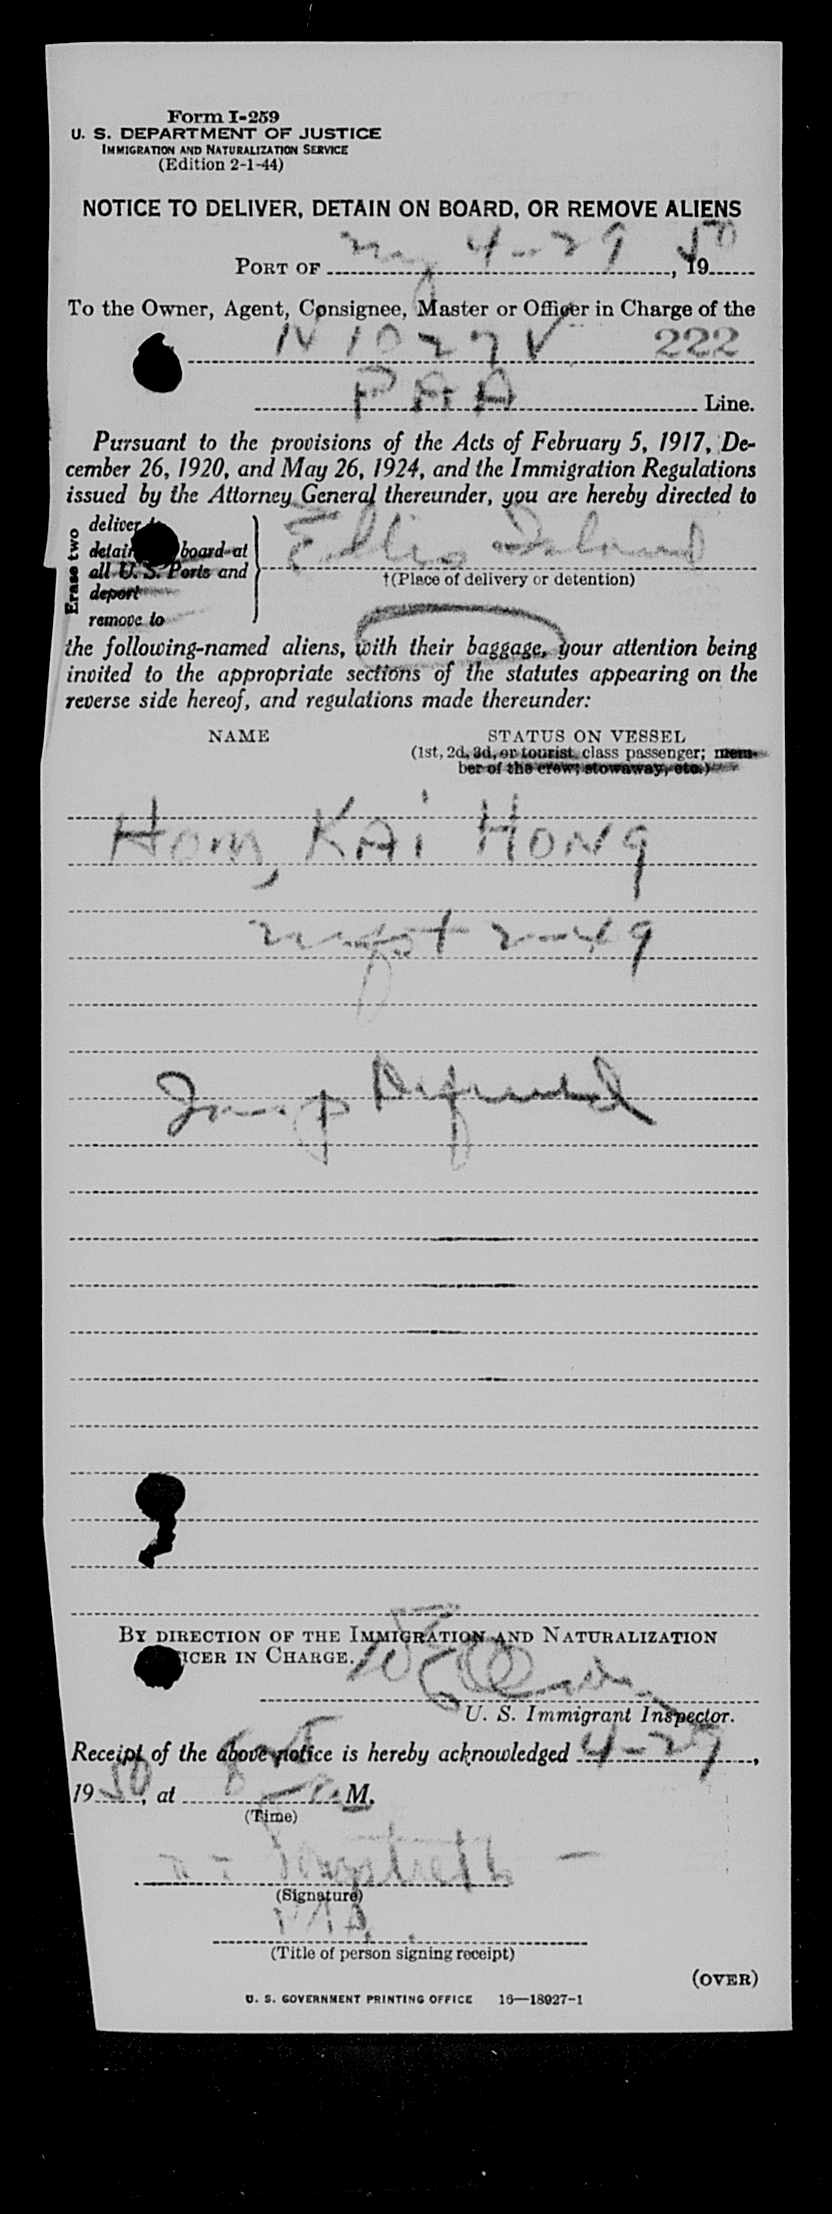 Form I-259
U. S. DEPARTMENT OF JUSTICE
IMMIGRATION AND NATURALIZATION SERVICE
(Edition 2-1-44)
NOTICE TO DELIVER, DETAIN ON BOARD, OR REMOVE ALIENS
PORT OF NY 4-29, 1950
To the Owner, Agent, Consignee, Master or Officer in Charge of the
N 1027 V 222
PAA Line.
Pursuant to the provisions of the Acts of February 5, 1917, De-
cember 26, 1920, and May 26, 1924, and the Immigration Regulations
issued by the Attorney General thereunder, you are hereby directed to
Erase two
deliver to
detain board at
all U. S. Ports and
deport
remove to
Ellis Island
†(Place of delivery or detention)
the following-named aliens, with their baggage, your attention being
invited to the appropriate sections of the statutes appearing on the
reverse side hereof, and regulations made thereunder:
NAME STATUS ON VESSEL
(1st, 2d, 3d, or tourist class passenger; mem-
ber of the crew; stowaway, etc.)
HOM, KAI HONG
2-49
BY DIRECTION OF THE IMMIGRATION AND NATURALIZATION
ICER IN CHARGE.
U. S. Immigrant Inspector.
Receipt of the above notice is hereby acknowledged 4-29,
1950, at P. M.
(Time)
(Signature)
PAA
(Title of person signing receipt)
(OVER)
U. S. GOVERNMENT PRINTING OFFICE 16—18927-1